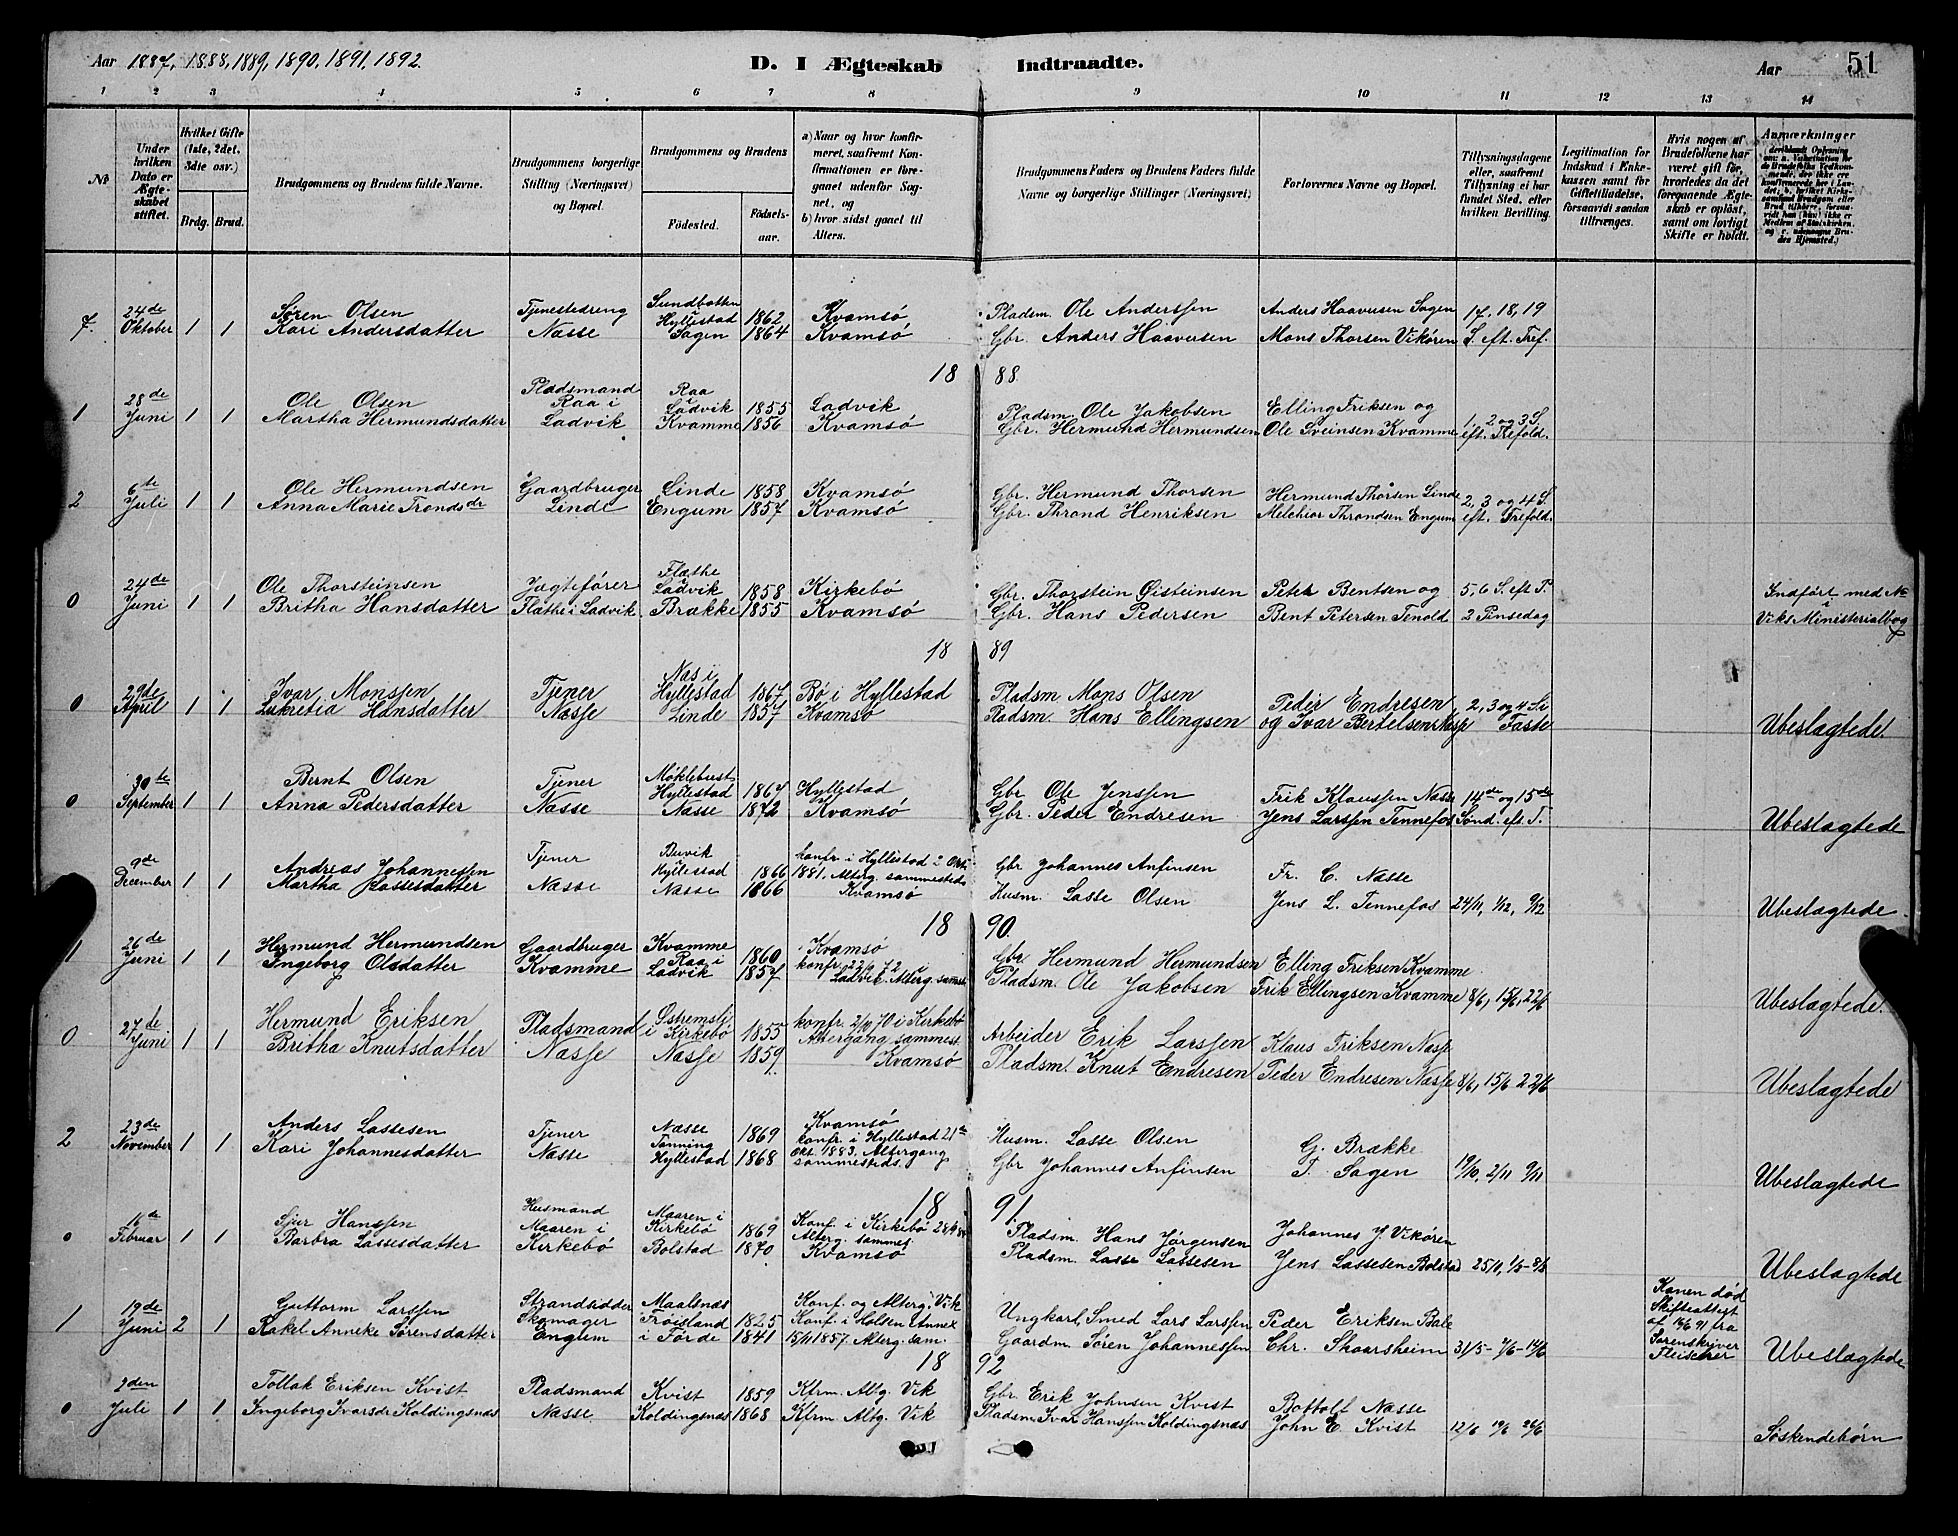 Aar 1887, 1888, 1889, 1890, 1891, 1892.
D. I Ægteskab Indtraadte.
Aar 51
1 2 3 4 5 6 7 8 9 10 11 12 13 14
No
Under hvilken Dato er Ægteskabet stiftet.
Hvilket Gifte (1ste, 2det, 3die osv.)
Brdg. Brud.
Brudgommens og Brudens fulde Navne.
Brudgommens borgerlige Stilling (Næringsvei) og Bopæl.
Brudgommens og Brudens
Fødested.
Fødselsaar.
a) Naar og hvor konfirmeret, saafremt Konfirmationen er foregaaet udenfor Sognet, og
b) hvor sidst gaaet til Alters.
Brudgommens Faders og Brudens Faders fulde Navne og borgerlige Stillinger (Næringsvei)
Forlovernes Navne og Bopæl.
Tillysningsdagene eller, saafremt Tillysning ei har fundet Sted, efter hvilken Bevilling.
Legitimation for Indskud i Enkekassen samt for Giftetilladelse, forsaavidt saadan tiltrænges.
Hvis nogen af Brudefolkene har været gift før, hvorledes da det foregaaende Ægteskab er opløst, samt om lovligt Skifte er holdt.
Anmærkninger
7. 24de Oktober 1 1
Søren Olsen
Kari Andersdatter
Tjenestedreng
Nasse
Sundbotten
Hyllestad 1862
Sagen 1864
Kvamsö
Kvamsö
Pladsm. Ole Anderssen
Gbr. Anders Haavesen
Anders Haavesen Sagen
Mons Thorsen Vikören
17, 18, 19
S. eft. Tref.
1888.
1 28de Juni 1 1
Ole Olsen
Martha Hermundsdatter
Pladsmand
Raa i
Ladvik
Raa
i
Ladvik 1855
Kvamme 1856
Ladvik
Kvamsö
Pladsm. Ole Jakobsen
Gbr. Hermund Hermundsen
Elling Eriksen og
Ole Sveinsen Kvamme
1, 2 og 3 S.
eft. Trefold.
2 6te Juli 1 1
Ole Hermundsen
Anna Marie Tronds dr
Gaardbruger
Linde
Linde 1858
Engum 1857
Kvamsö
Kvamsö
Gbr. Hermund Thorsen
Gbr. Thrond Henriksen
Hermund Thorsen Linde
Melchior Throndsen Engum
2, 3 og 4 S.
eft. Trefold.
0 24de Juni 1 1
Ole Thorsteinsen
Britha Hansdatter
Jægtefører
Flathe i Ladvik
Flathe
i
Ladvik 1858
Brække 1855
Kirkebö
Kvamsö
Gbr. Thorstein Øisteinsen
Gbr. Hans Pedersen
Peter Bentsen og
Bent Petersen Tenold
5, 6 S. eft P.
2 Pinsedag
Indført med No
i
Viks Ministerialbog
1889
0 29de April 1 1
Ivar Monssen
Lukretia Hansdatter
Tjener
Nasse
Nas i
Hyllestad 1867
Linde 1857
Bö i Hyllestad
Kvamsö
Pladsm Mons Olsen
Pladsm. Hans Ellingsen
Peder Endresen
og Ivar Bertelsen Nasse
2, 3 og 4 S. i
Faste
Ubeslagtede.
0 30te September 1 1
Bernt Olsen
Anna Pedersdatter
Tjener
Nasse
Møklebust
Hyllestad 1867
Nasse 1872
Hyllestad
Kvamsö
Gbr Ole Jenssen
Gbr. Peder Endresen
Erik Klaussen Nasse
Jens Larssen Tennefos
14de og 15de
Sönd. eft. T.
Ubeslagtede
9de December 1 1
Andreas Johannessen
Martha Lassesdatter
Tjener
Nasse
Buvik
Hyllestad 1866
Nasse 1866
konfr. i Hyllestad 2 Okt.
1881. Alterg. sammesteds
Kvamsö
Gbr Johannes Anfinsen
Husm. Lasse Olsen
Fr. C. Nasse
Jens L. Tennefos
24/11, 1/12, 8/12
Ubeslagtede.
1890.
1 26de Juni 1 1
Hermund Hermundsen
Ingeborg Olsdatter
Gaardbruger
Kvamme
Kvamme 1860
Raa i
Ladvik 1857
Kvamsö
konfr. 22/9 72 i
Ladvik. Alterg. samst.
Gbr Hermund Hermundsen
Pladsm. Ole Jakobsen
Elling Eriksen Kvamme
Erik Ellingsen Kvamme
8/6, 15/6, 22/6
Ubeslagtede.
0 27de Juni 1 1
Hermund Eriksen
Britha Knutsdatter
Pladsmand
Nasse
Østremsli
i Kirkebö 1855
Nasse 1859
konfr. 2/10 70 i Kirkebö
Altergang sammest.
Kvamsö
Arbeider Erik Larssen
Pladsm. Knut Endresen
Klaus Eriksen Nasse
Peder Endresen Nasse
8/6, 15/6 22/6
Ubeslagtede
2 23de November 1 1
Anders Lassesen
Kari Johannesdatter
Tjener
Nasse
Nasse 1869
Tønning
Hyllestad 1868
Kvamsö
konfr. i Hyllestad 21te
Okt. 1883. Altergang
sammesteds.
Husm. Lasse Olsen
Gbr Johannes Anfinsen
G. Brække
T. Sagen
19/10, 2/11 9/11
Ubeslagtede
1891.
0 16de Februar 1 1
Sjur Hanssen
Barbra Lassesdatter
Husmand
Maaren i
Kirkebö
Maaren i
Kirkebö 1869
Bolstad 1870
Konf. i Kirkebö 28/9 84
Alterg. sammes.
Kvamsö
Pladsm. Hans Jørgensen
Pladsm. Lasse Lassesen
Johannes J. Vikören
Jens Lassesen Bolstad
25/1, 1/2 - 8/2
Ubeslagtede
1 19de Juni 2 1
Guttorm Larssen
Rakel Anneke Sørensdatter
Strandsidder
Skomager
Engum
Maalsnæs 1825
Frøisland
i Førde 1841
Konf. og Alterg. i Vik
Konf. i Holsen Annex
15/11 1857. Alterg. sam.
Ungkarl, Smed Lars Larssen
Gaardm. Søren Johannessen
Peder Eriksen Bale
Chr. Skaarsheim
31/5 - 7/6 - 14/6
Konen död
Skifteattest
af 14/6 91 fra
Sorenskriver
Fleischer
Ubeslagtede
1892
0 2den Juli 1 1
Tollak Eriksen Kvist
Ingeborg Ivarsdr Koldingsnæs
Pladsmand
Nasse
Kvist 1859
Koldingsnæs 1868
Kfrm. Altg. Vik
Kfrm. Altg. Vik
Gbr Erik Johnsen Kvist
Pladsm. Ivar Hanssen Koldingsnæs
Bottolf Nasse
John E. Kvist
12/6 19/6 26/6
Søskendebörn